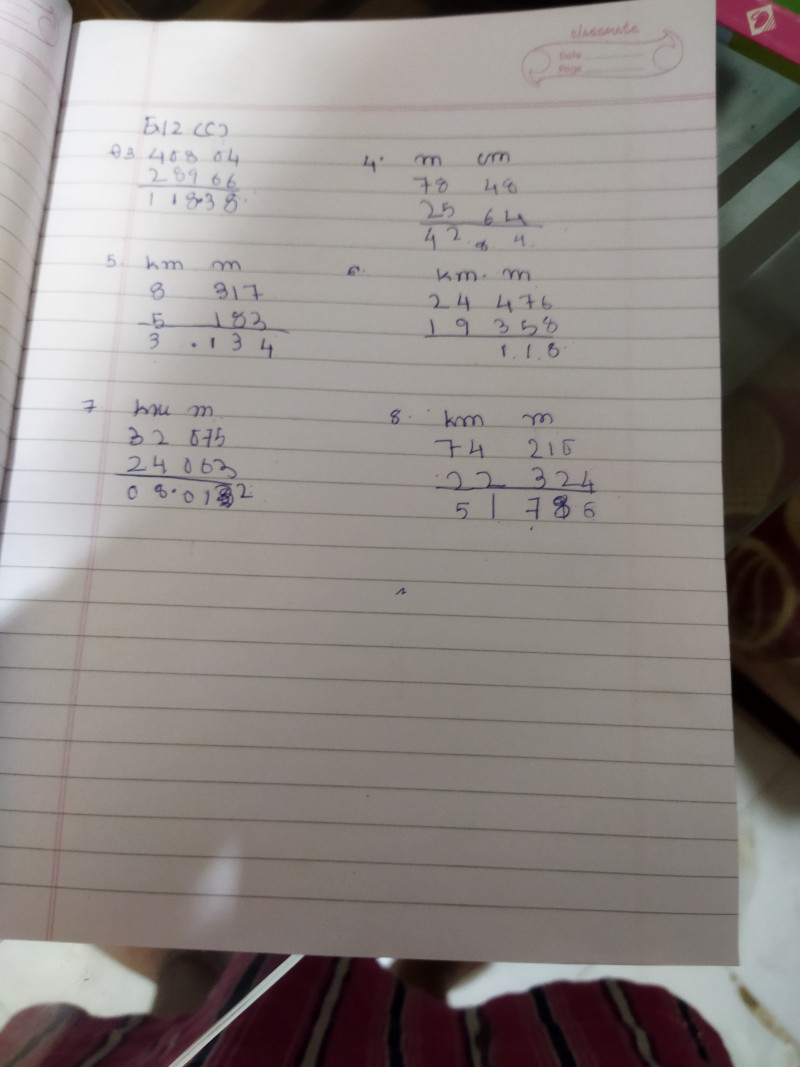 classmate
Date
Page
Ex12 (C)
Q3 408 04
289 66
118.38
4. m cm
78 48
25 64
42.84
5. km m
8 317
5 183
3 .134
6. km. m
24 476
19 358
1.1.8
7 km m
32 075
24 063
08.012
8. km m
74 215
22 324
51 786